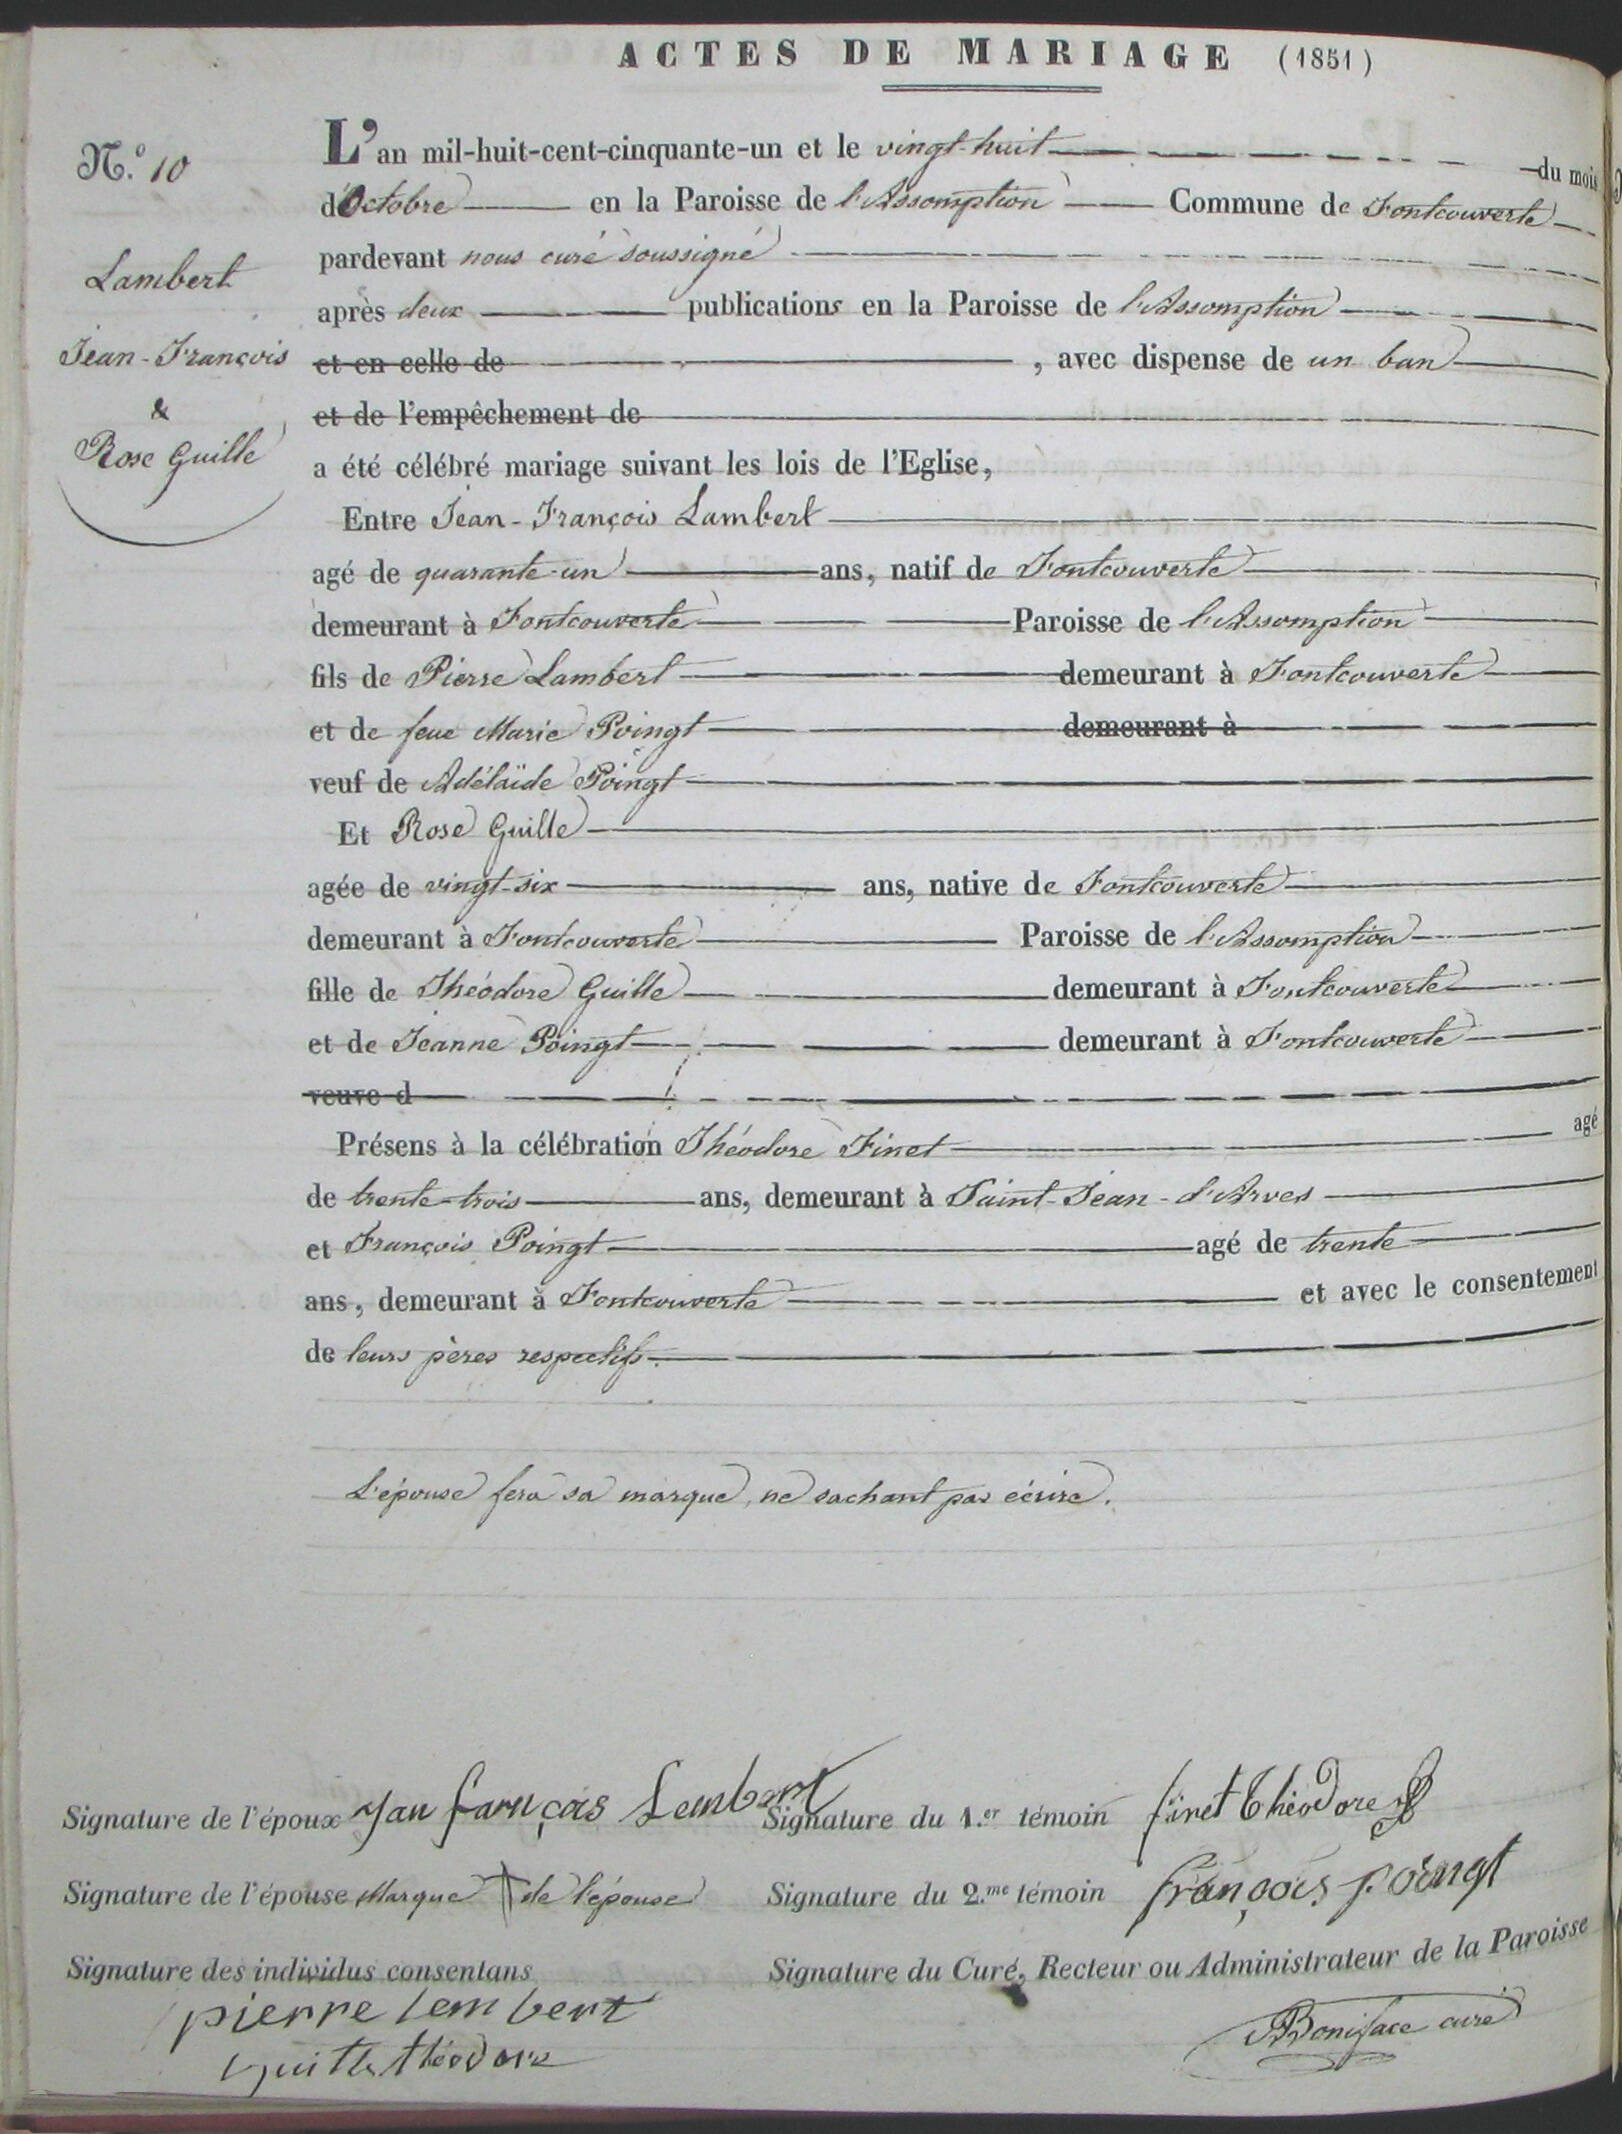 ACTES DE MARIAGE (1851)
N.º 10
Lambert
Jean-François
&
Rose Guille
L'an mil-huit-cent-cinquante-un et le vingt-huit du mois
d'Octobre en la Paroisse de l'Assomption Commune de Fontcouverte
pardevant nous curé soussigné
après deux publications en la Paroisse de l'Assomption
et en celle de , avec dispense de un ban
et de l'empêchement de
a été célébré mariage suivant les lois de l'Eglise,
Entre Jean-François Lambert
agé de quarante-un ans, natif de Fontcouverte
demeurant à Fontcouverte Paroisse de l'Assomption
fils de Pierre Lambert demeurant à Fontcouverte
et de feue Marie Poingt demeurant à
veuf de Adélaïde Poingt
Et Rose Guille
agée de vingt-six ans, native de Fontcouverte
demeurant à Fontcouverte Paroisse de l'Assomption
fille de Théodore Guille demeurant à Fontcouverte
et de Jeanne Poingt demeurant à Fontcouverte
veuve d
Présens à la célébration Théodore Finet agé
de trente-trois ans, demeurant à Saint-Jean-d'Arves
et François Poingt agé de trente
ans, demeurant à Fontcouverte et avec le consentement
de leurs pères respectifs.
L'épouse fera sa marque, ne sachant pas écrire.
Signature de l'époux Jan françois Lembert Signature du 1.er témoin finet théodore
Signature de l'épouse Marque † de l'épouse Signature du 2.me témoin françois poingt
Signature des individus consentans Signature du Curé, Recteur ou Administrateur de la Paroisse
pierre lembert
guille théodore
Boniface curé